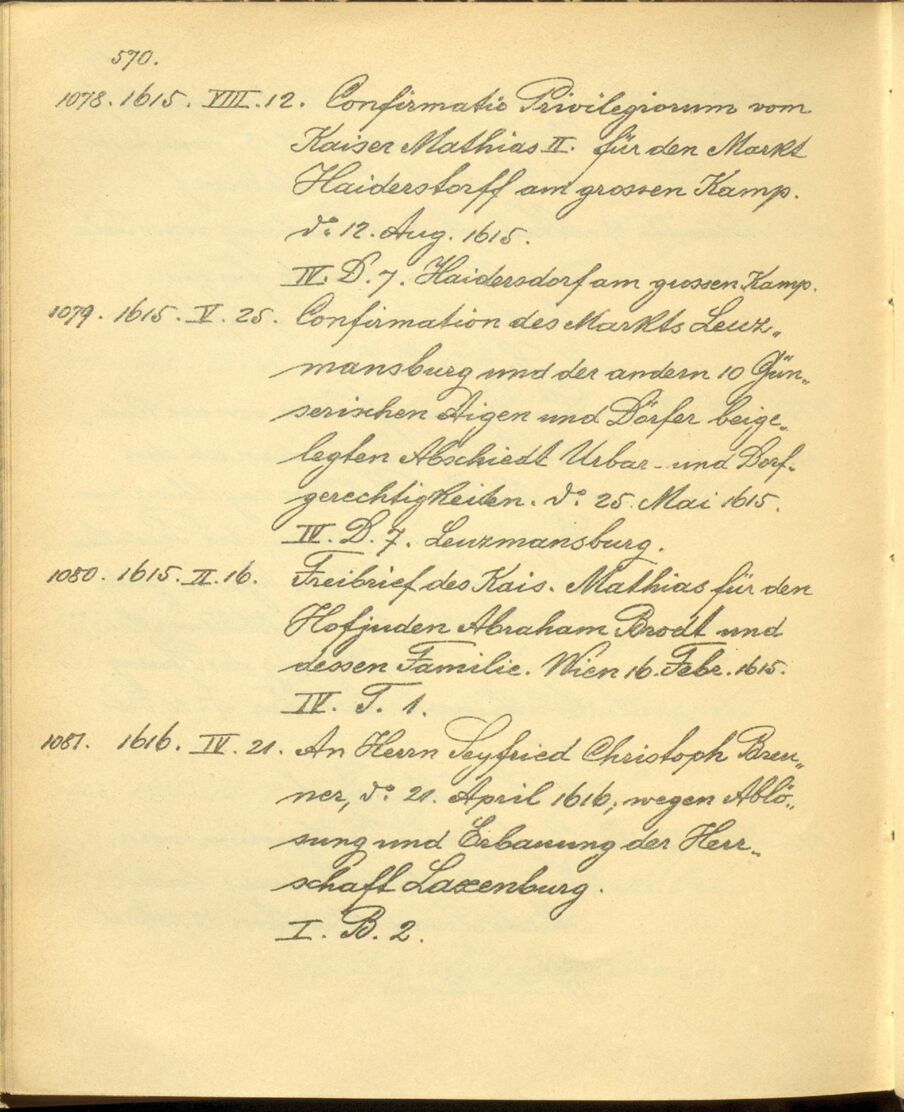 570.
1078. 1615. VIII. 12. Confirmatio Privilegiorum vom
Kaiser Mathias II. für den Markt
Haiderstorff am grossen Kamp.
d.° 12. Aug. 1615.
IV. D. 7. Haidersdorf am grossen Kamp.
1079. 1615. V. 25. Confirmation des Markts Leuz„
mansburg und der andern 10 Gün„
serischen Aigen und Dörfer beige„
legten Abschiedt Urbar- und Dorf-
gerechtigkeiten. d.° 25. Mai 1615.
IV. D. 7. Leuzmansburg.
1080. 1615. II. 16. Freibrief des Kais. Mathias für den
Hofjuden Abraham Brodt und
dessen Familie. Wien 16. Febr. 1615.
IV. T. 1.
1081. 1616. IV. 21. An Herrn Seyfried Christoph Breu„
ner, d.° 21. April 1616, wegen Ablö„
sung und Erbauung der Herr„
schaft Laxenburg.
I. B. 2.